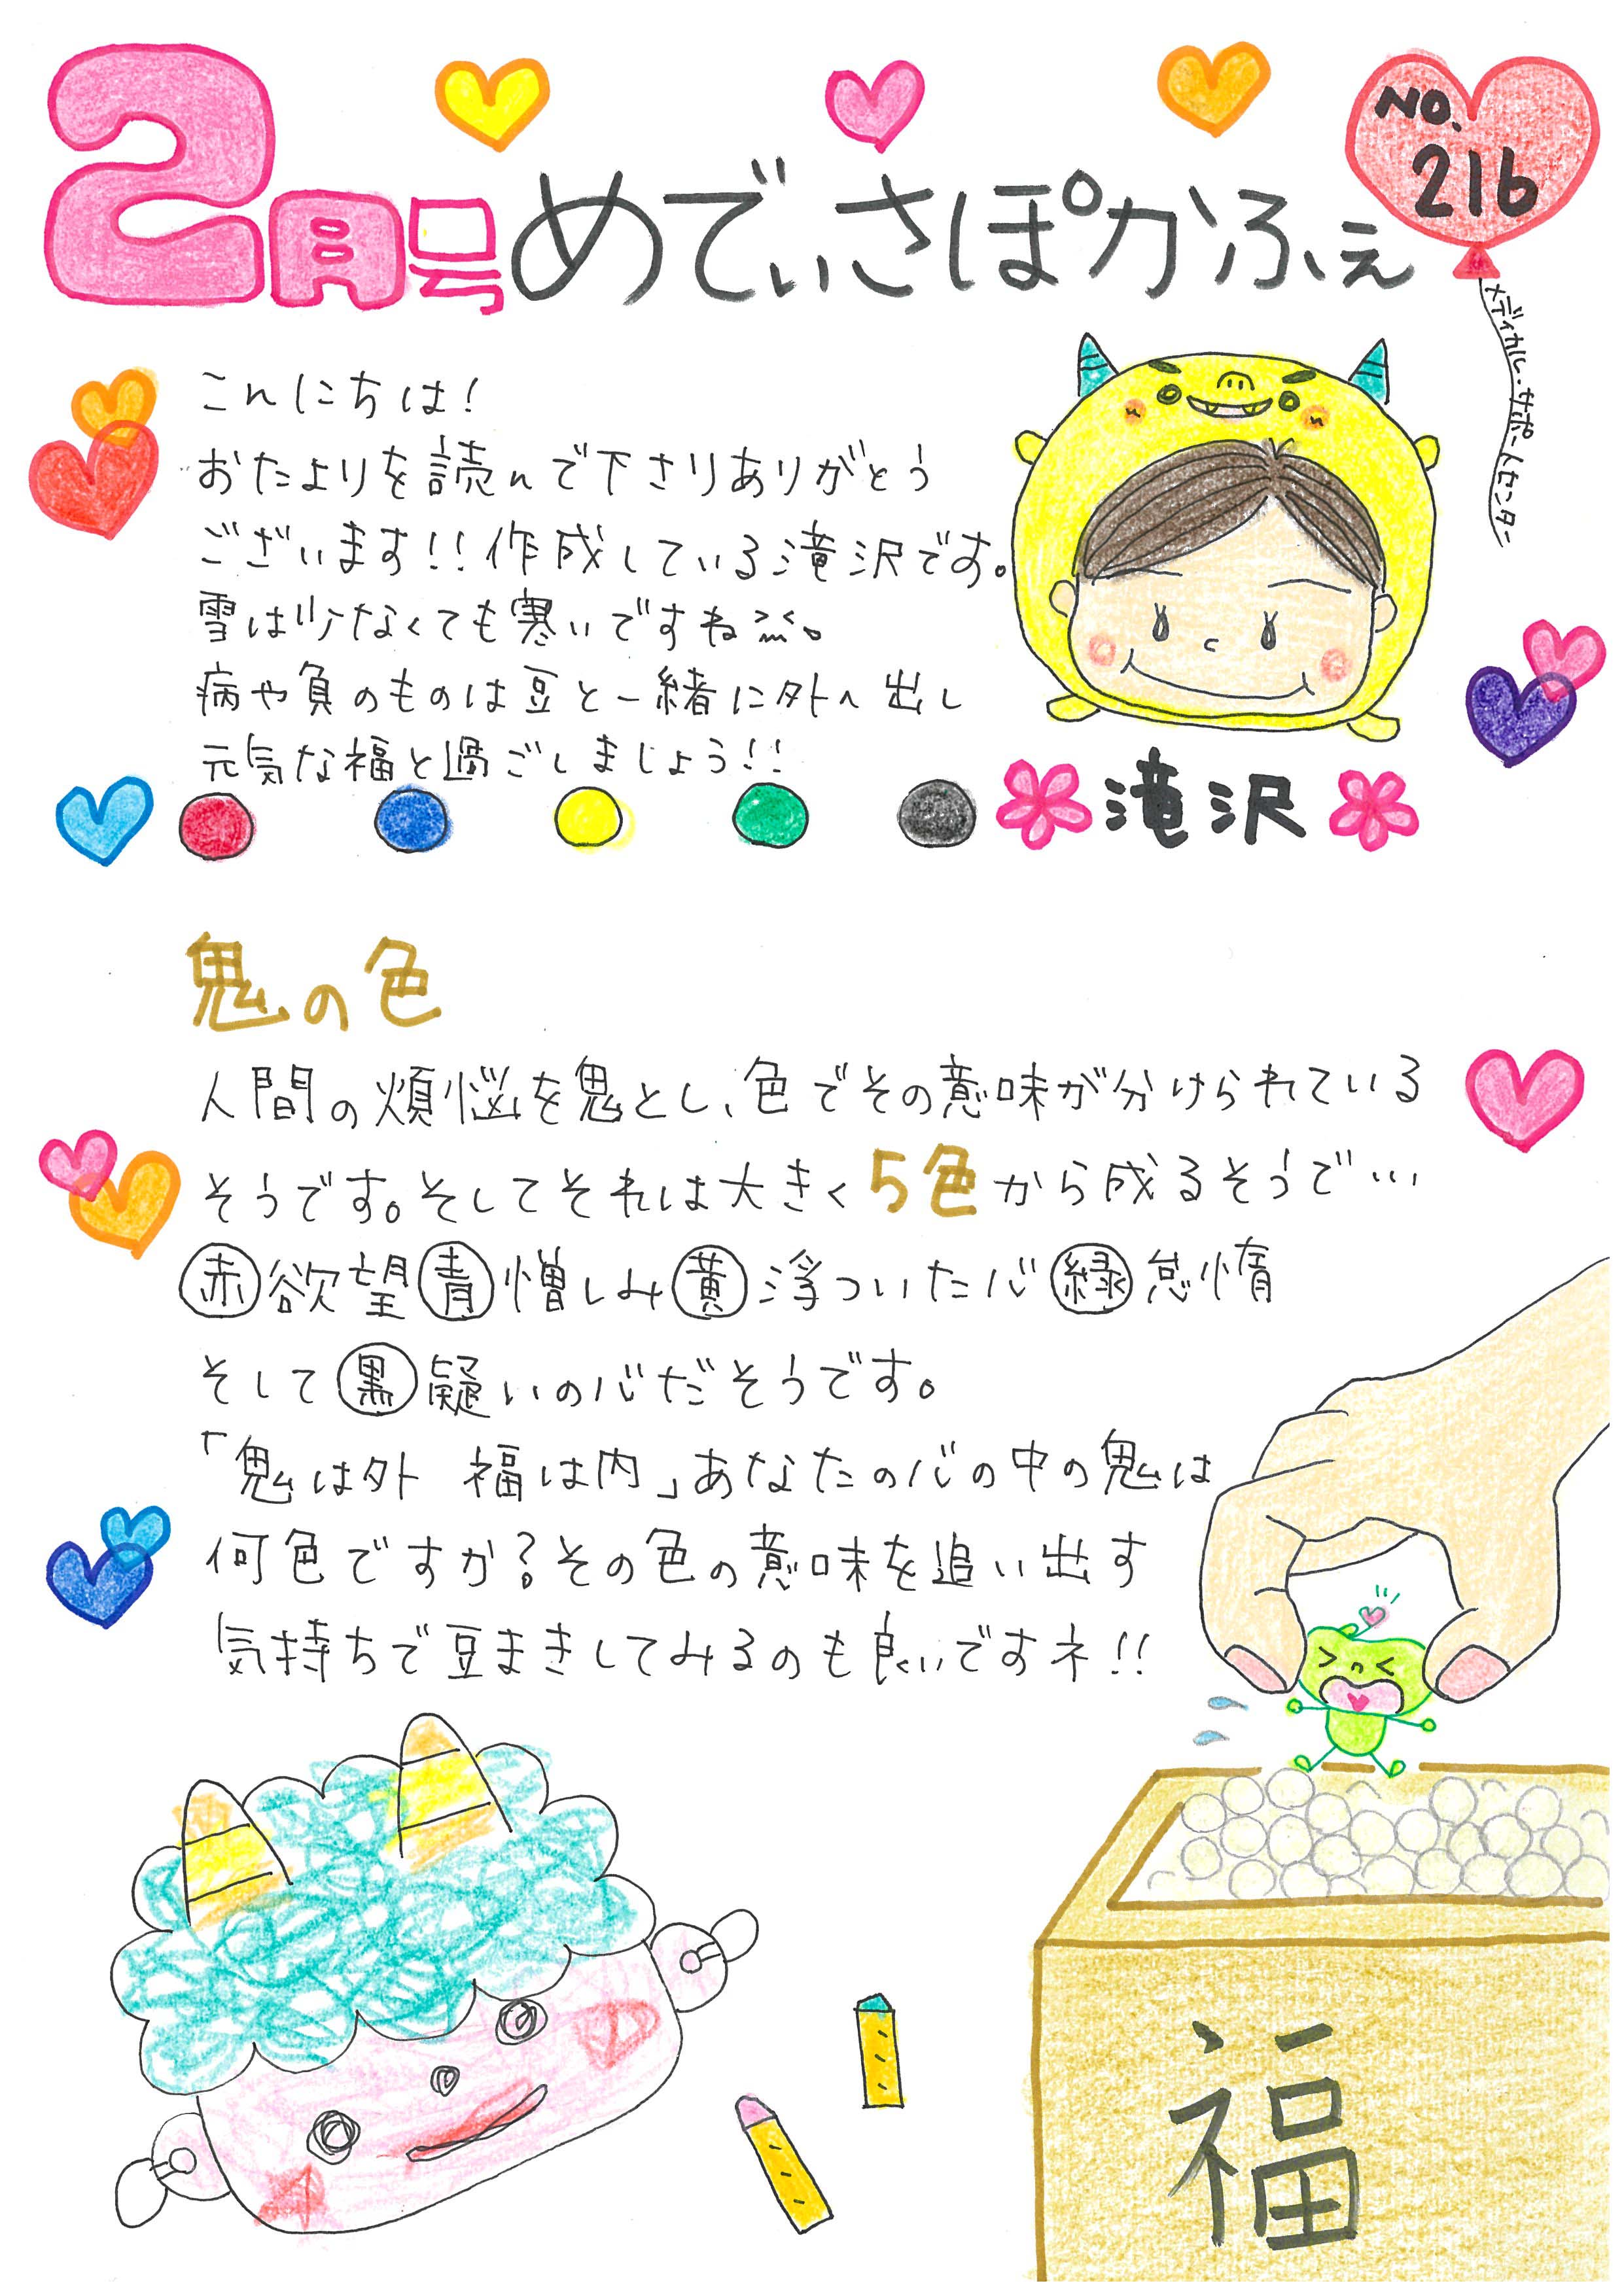 2月号 めでぃさぽかふぇ
NO.
216
メディカル・サポートセンター
こんにちは!
おたよりを読んで下さりありがとう
ございます!!作成している滝沢です。
雪は少なくても寒いですね
病や負のものは豆と一緒に外へ出し
元気な福と過ごしましょう!!
滝沢
鬼の色
人間の煩悩を鬼とし、色でその意味が分けられている
そうです。そしてそれは大きく5色から成るそうで…
赤欲望青憎しみ黄浮ついた心緑怠惰
そして黒疑いの心だそうです。
「鬼は外 福は内」あなたの心の中の鬼は
何色ですか?その色の意味を追い出す
気持ちで豆まきしてみるのも良いですネ!!
福